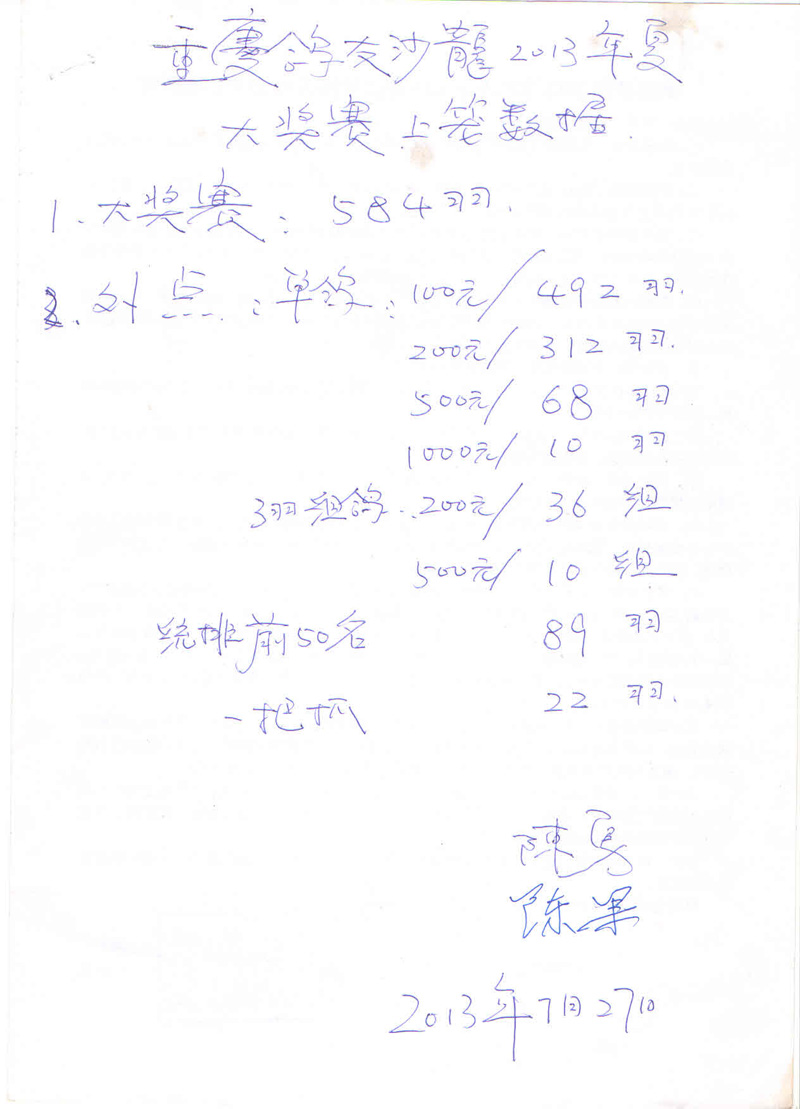 重慶鸽友沙龍2013年夏
大奖赛上笼数据.
1.大奖赛: 584羽.
2.外点: 单鸽: 100元/ 492 羽.
200元/ 312 羽.
500元/ 68 羽
1000元/ 10 羽
3羽组鸽:200元/ 36 组
500元/ 10 组
统排前50名 89 羽
一把抓 22 羽.
陳
陈果
2013年7月27日